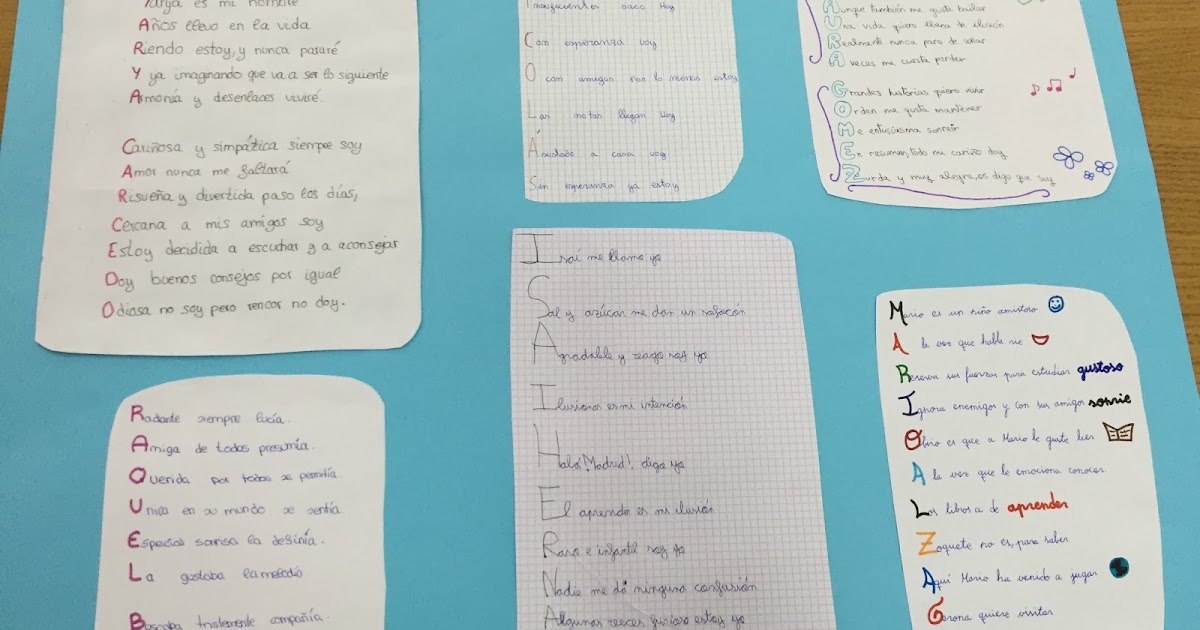 es mi nombre
Años llevo en la vida
Riendo estoy, y nunca pararé
Y ya imaginando que va a ser lo siguiente
Armonía y desenlaces viviré.
Cariñosa y simpática siempre soy
Amor nunca me faltará
Risueña y divertida paso los días,
Cercana a mis amigos soy
Estoy decidida a escuchar y a aconsejar
Doy buenos consejos por igual
Odiosa no soy pero rencor no doy.
saco hoy
Con esperanza voy
O con amigos por lo menos estoy
Las notas llegan hoy
Asustado a casa voy
Sin esperanza ya estoy
Aunque también me gusta bailar
Una vida quiero llena de ilusión
Realmente nunca paro de soñar
A veces me cuesta perder
Grandes historias quiero vivir
Orden me gusta mantener
Me entusiasma sonreir
En resumen, todo mi cariño doy
Zurda y muy alegra, os digo que soy
Isaí me llamo yo
Sal y azúcar me dan un
Agradable y soy yo
Ilusionar es mi intención
Hala! Madrid!, digo yo
El aprendo es mi ilusión
Raro e infantil soy yo
Nadie me da ninguna confusión
Algunas veces furioso estoy yo
Mario es un niño amistoso
A la vez que habla rie
Reserva sus fuerzas para estudiar gustoso
Ignora enemigos y con sus amigos sonrie
Obvio es que a Mario le gusta leer
A la vez que le emociona conocer
Los libros a de aprender
Zoquete no es, para saber
Aquí Mario ha venido a jugar
Gerona quiere visitar
Radante siempre lucía.
Amiga de todos presumía.
Querida por todos se permitía.
Unica en su mundo se sentía.
Especial sonrisa la definía.
La gustaba la melodío
Buscaba tristemente compañía.